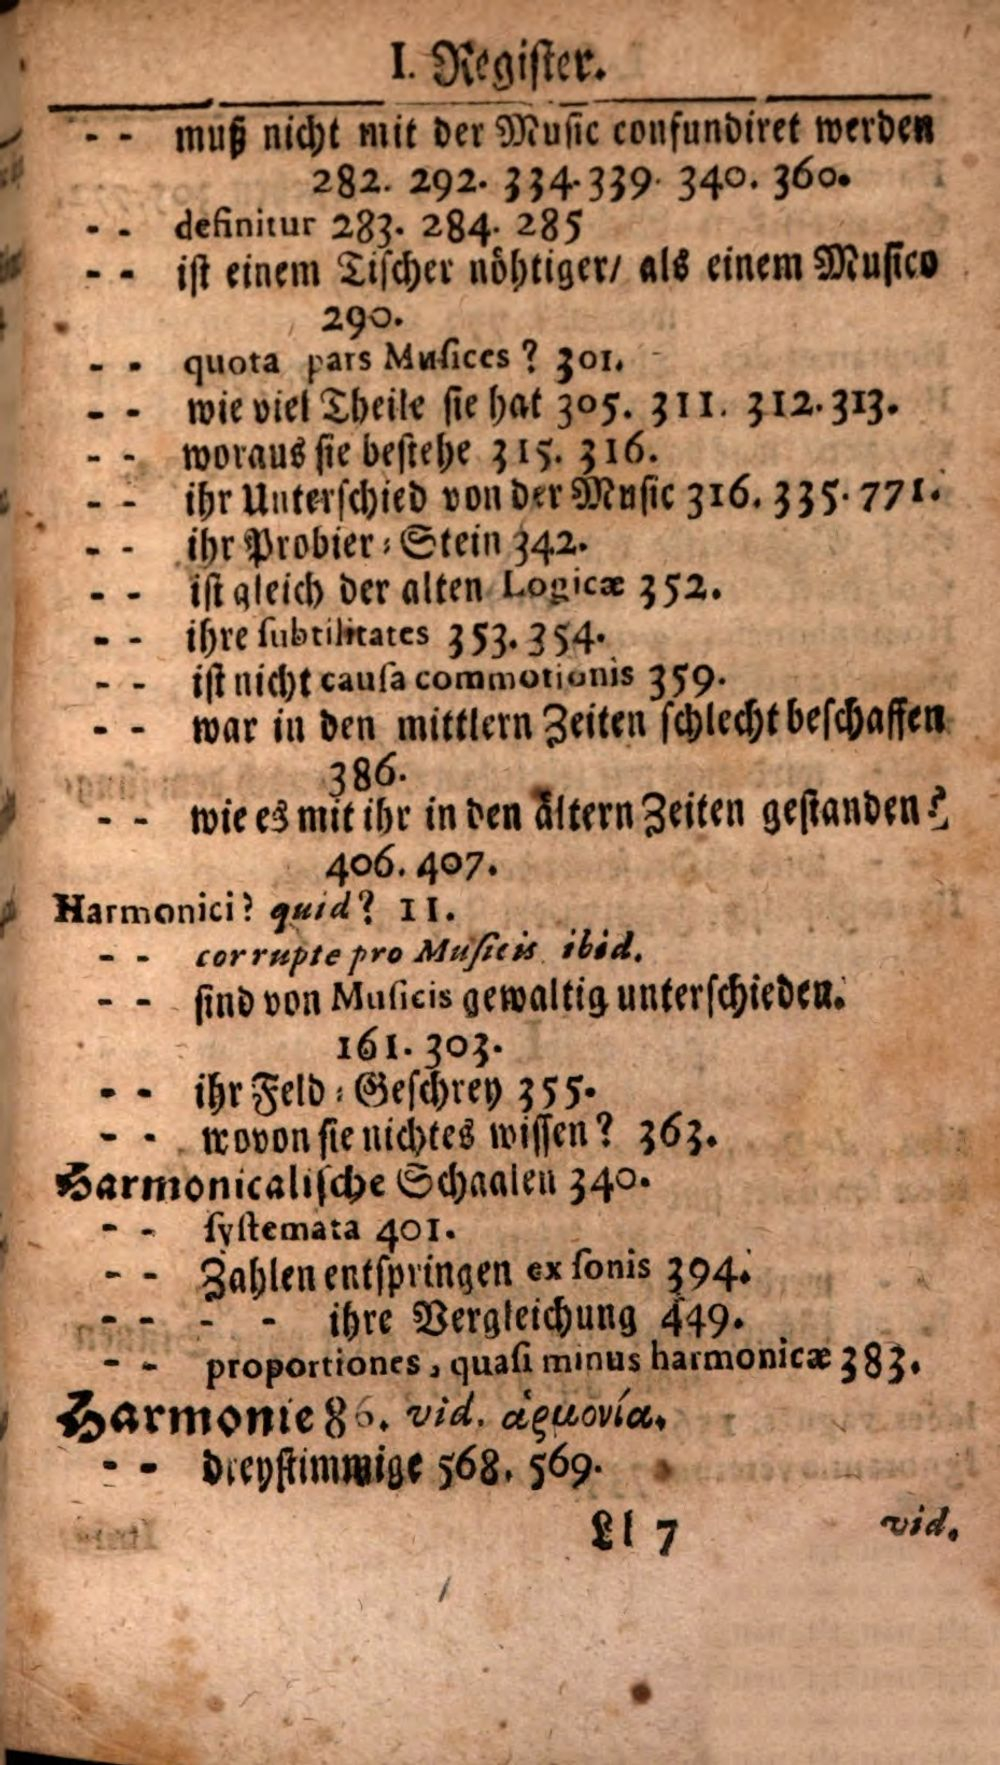 I. Regiſter.
- - muß nicht mit der Muſic confundiret werden
282. 292. 334. 339. 340. 360.
- - definitur 283. 284. 285
- - iſt einem Tiſcher nöhtiger/ als einem Muſico
290.
- - quota pars Muſices? 301.
- - wie viel Theile ſie hat 305. 311. 312. 313.
- - woraus ſie beſtehe 315. 316.
- - ihr Unterſchied von der Muſic 316. 335. 771.
- - ihr Probier-Stein 342.
- - iſt gleich der alten Logicæ 352.
- - ihre ſubtilitates 353. 354.
- - iſt nicht cauſa commotionis 359.
- - war in den mittlern Zeiten ſchlecht beſchaffen
386.
- - wie es mit ihr in den ältern Zeiten geſtanden?
406. 407.
Harmonici? quid? 11.
- - corrupte pro Muſicis ibid.
- - ſind von Muſicis gewaltig unterſchieden.
161. 303.
- - ihr Feld-Geſchrey 355.
- - wovon ſie nichtes wiſſen? 363.
Harmonicaliſche Schaalen 340.
- - ſyſtemata 401.
- - Zahlen entſpringen ex ſonis 394.
- - - - ihre Vergleichung 449.
- - proportiones, quaſi minus harmonicæ 383.
Harmonie 86. vid. ἁρμονία.
- - dreyſtimmige 568. 569.
Ll 7 vid.